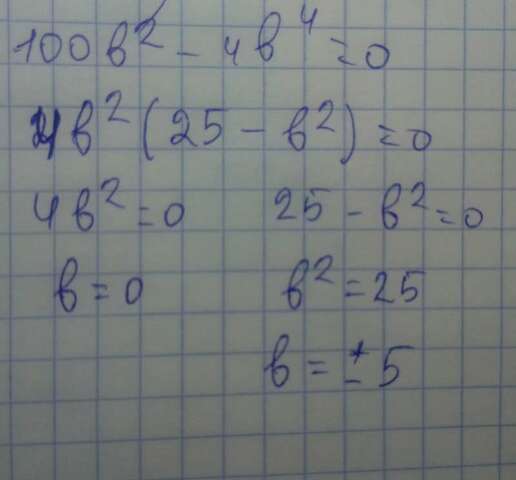 100в² - 4в⁴ = 0
4в² (25 - в²) = 0
4в² = 0 25 - в² = 0
в = 0 в² = 25
в = ± 5